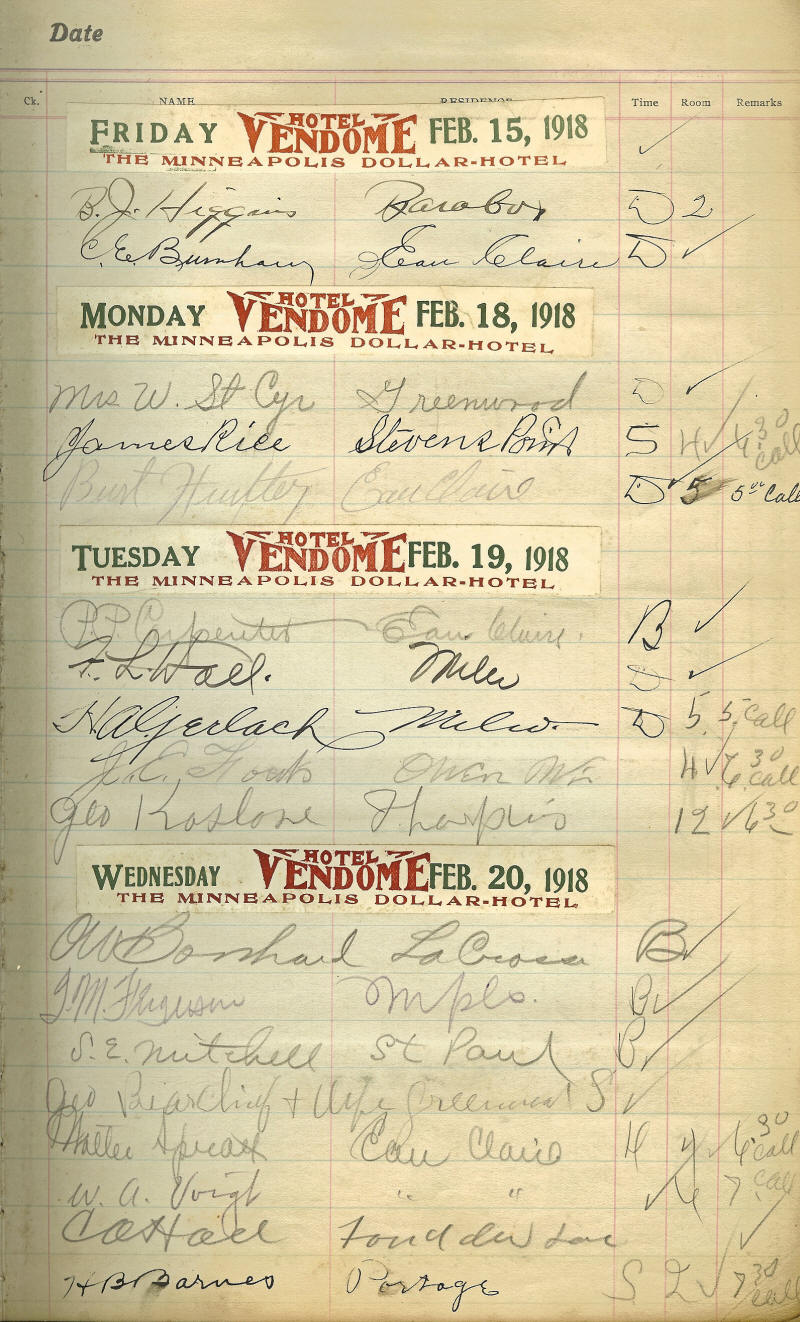 Date
Ck. NAME RESIDENCE Time Room Remarks
FRIDAY HOTEL VENDOME FEB. 15, 1918
THE MINNEAPOLIS DOLLAR-HOTEL
B. J. Higgins Baraboo D 2
C. E. Burnham Eau Claire D ✓
MONDAY HOTEL VENDOME FEB. 18, 1918
THE MINNEAPOLIS DOLLAR-HOTEL
Mrs W. St Cyr Greenwood D ✓
James Rice Stevens Point S 4 ✓ 4 30 call
Burt Eau Claire D ✓ 5 5 00 Call
TUESDAY HOTEL VENDOME FEB. 19, 1918
THE MINNEAPOLIS DOLLAR-HOTEL
P. P. Carpenter Eau Claire. B ✓
F. L. Hall. Milw D ✓
H A Gerlach Milw. D 5. 5. Call
J. E. Owen Wis 4 ✓ 6 30 call
Geo 12 ✓ 6 30
WEDNESDAY HOTEL VENDOME FEB. 20, 1918
THE MINNEAPOLIS DOLLAR-HOTEL
LaCrosse B ✓
J. M. Ferguson Mpls. B ✓
S. E. Mitchell St Paul B ✓
Geo Bearchief + Wife Greenwood S ✓
Walter Eau Claire 4 ✓ 6 30 call
W. A. Voigt " " ✓ 7 call
C A Hall Fond du Lac ✓
H B Barnes Portage S 2 ✓ 7 30 call